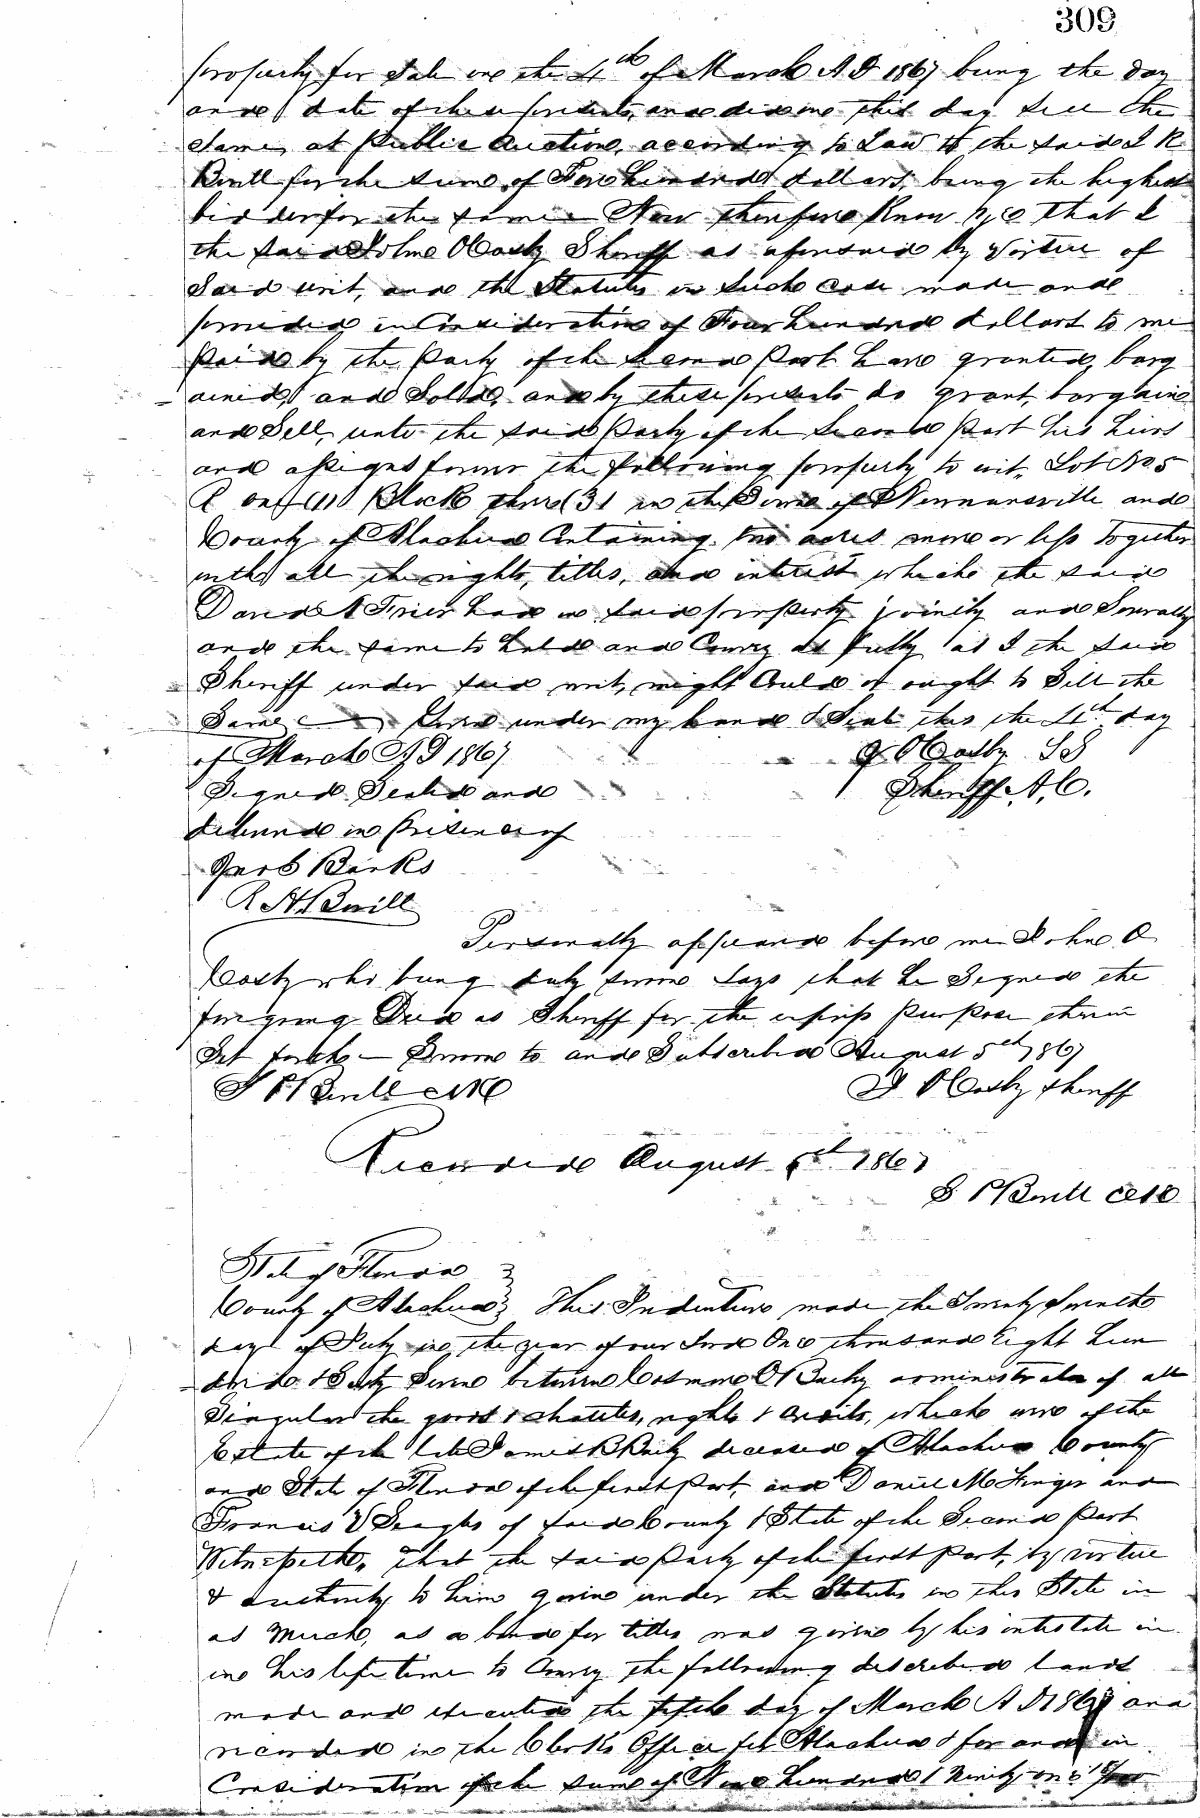 309
property for Sale on the 4th of March A.D 1867 being the day
and date of these presents, and did on this day sell the
Same, at Public Auction, according to Law to the said
Bevill for the sum of Four hundred dollars, being the highest
bidder for the same Now therefore Know Ye that I
the said John O Cosby Sheriff as aforesaid by virtue of
Said writ, and the Statutes in such case made and
provided in Consideration of Four hundred dollars to me
Paid by the Party of the Second Part have granted, barg
ained, and Sold, and by these presents do grant, bargain
and Sell, unto the said Party of the Second Part his heirs
and assigns forever the following property to wit, Lot No 5
(1) Block three (3) in the Town of Newnansville and
County of Alachua Containing two acres more or less Together
with all the rights, titles, and interest which the said
had in said property jointly and Severally
and the same to hold and Convey as fully as I the said
Sheriff under said writ, might Could or ought to Sell the
Same Given under my hand & Seal this the 4th day
of March A D 1867 J O Cosby LS
Signed Sealed and Sheriff A.C.
delivered in Presence of
Banks
R H Bevill
Personally appeared before me John O
Cosby who being duly sworn says that he Signed the
foregoing Deed as Sheriff for the express purpose therein
Set forth — Sworn to and Subscribed August 5th 1867
Bevill J O Cosby Sheriff
Recorded August 5th 1867
Bevill
State of Florida
County of Alachua This Indenture made the Twenty Seventh
day of July in the year of our Lord One thousand Eight hun
dred & Sixty Seven between administrator of all
Singular the goods & chattels, rights & credits, which were of the
Estate of the late James deceased of Alachua County
and State of Florida of the first Part, and Daniel M and
Francis of said County & State of the Second Part
Witnesseth, That the said Party of the first Part, by virtue
& authority to him given under the Statutes in this State in
as Much, as a bond for titles was given by his intestate in
in his life time to Convey the following described lands
made and executed the fifth day of March A D and
recorded in the Clerks Office for Alachua & for and in
Consideration of the sum of hundred & Ninety one